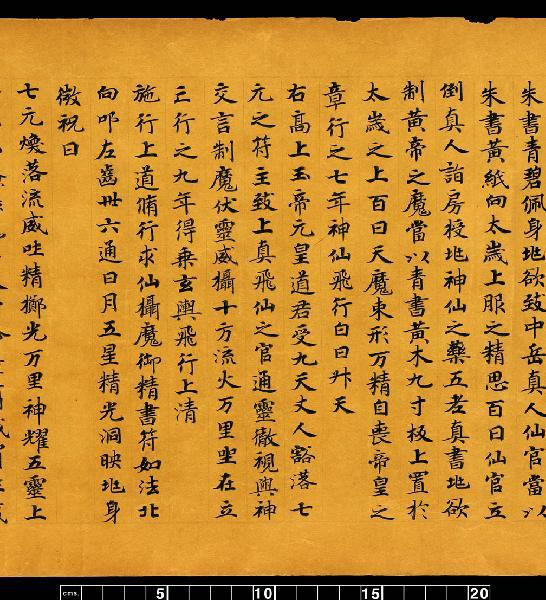 朱書青碧佩身地欲致中岳真人仙官當以
朱書黃紙向太歲上服之精思百日仙官立
倒真人詣房授地神仙之藥五老真書地欲
制黃帝之魔當以青書黃木九寸板上置於
太歲之上百日天魔束形万精自喪帝皇之
章行之七年神仙飛行白日升天
右高上玉帝元皇道君受九天丈人豁落七
元之符主致上真飛仙之官通靈徹視與神
交言制魔伏靈威攝十方流火万里坐在立
三行之九年得乗玄輿飛行上清
施行上道脩行求仙攝魔御精書符如法北
向叩左齒卅六通日月五星精光洞映地身
微祝曰
七元煥落流威吐精擲光万里神耀五靈上